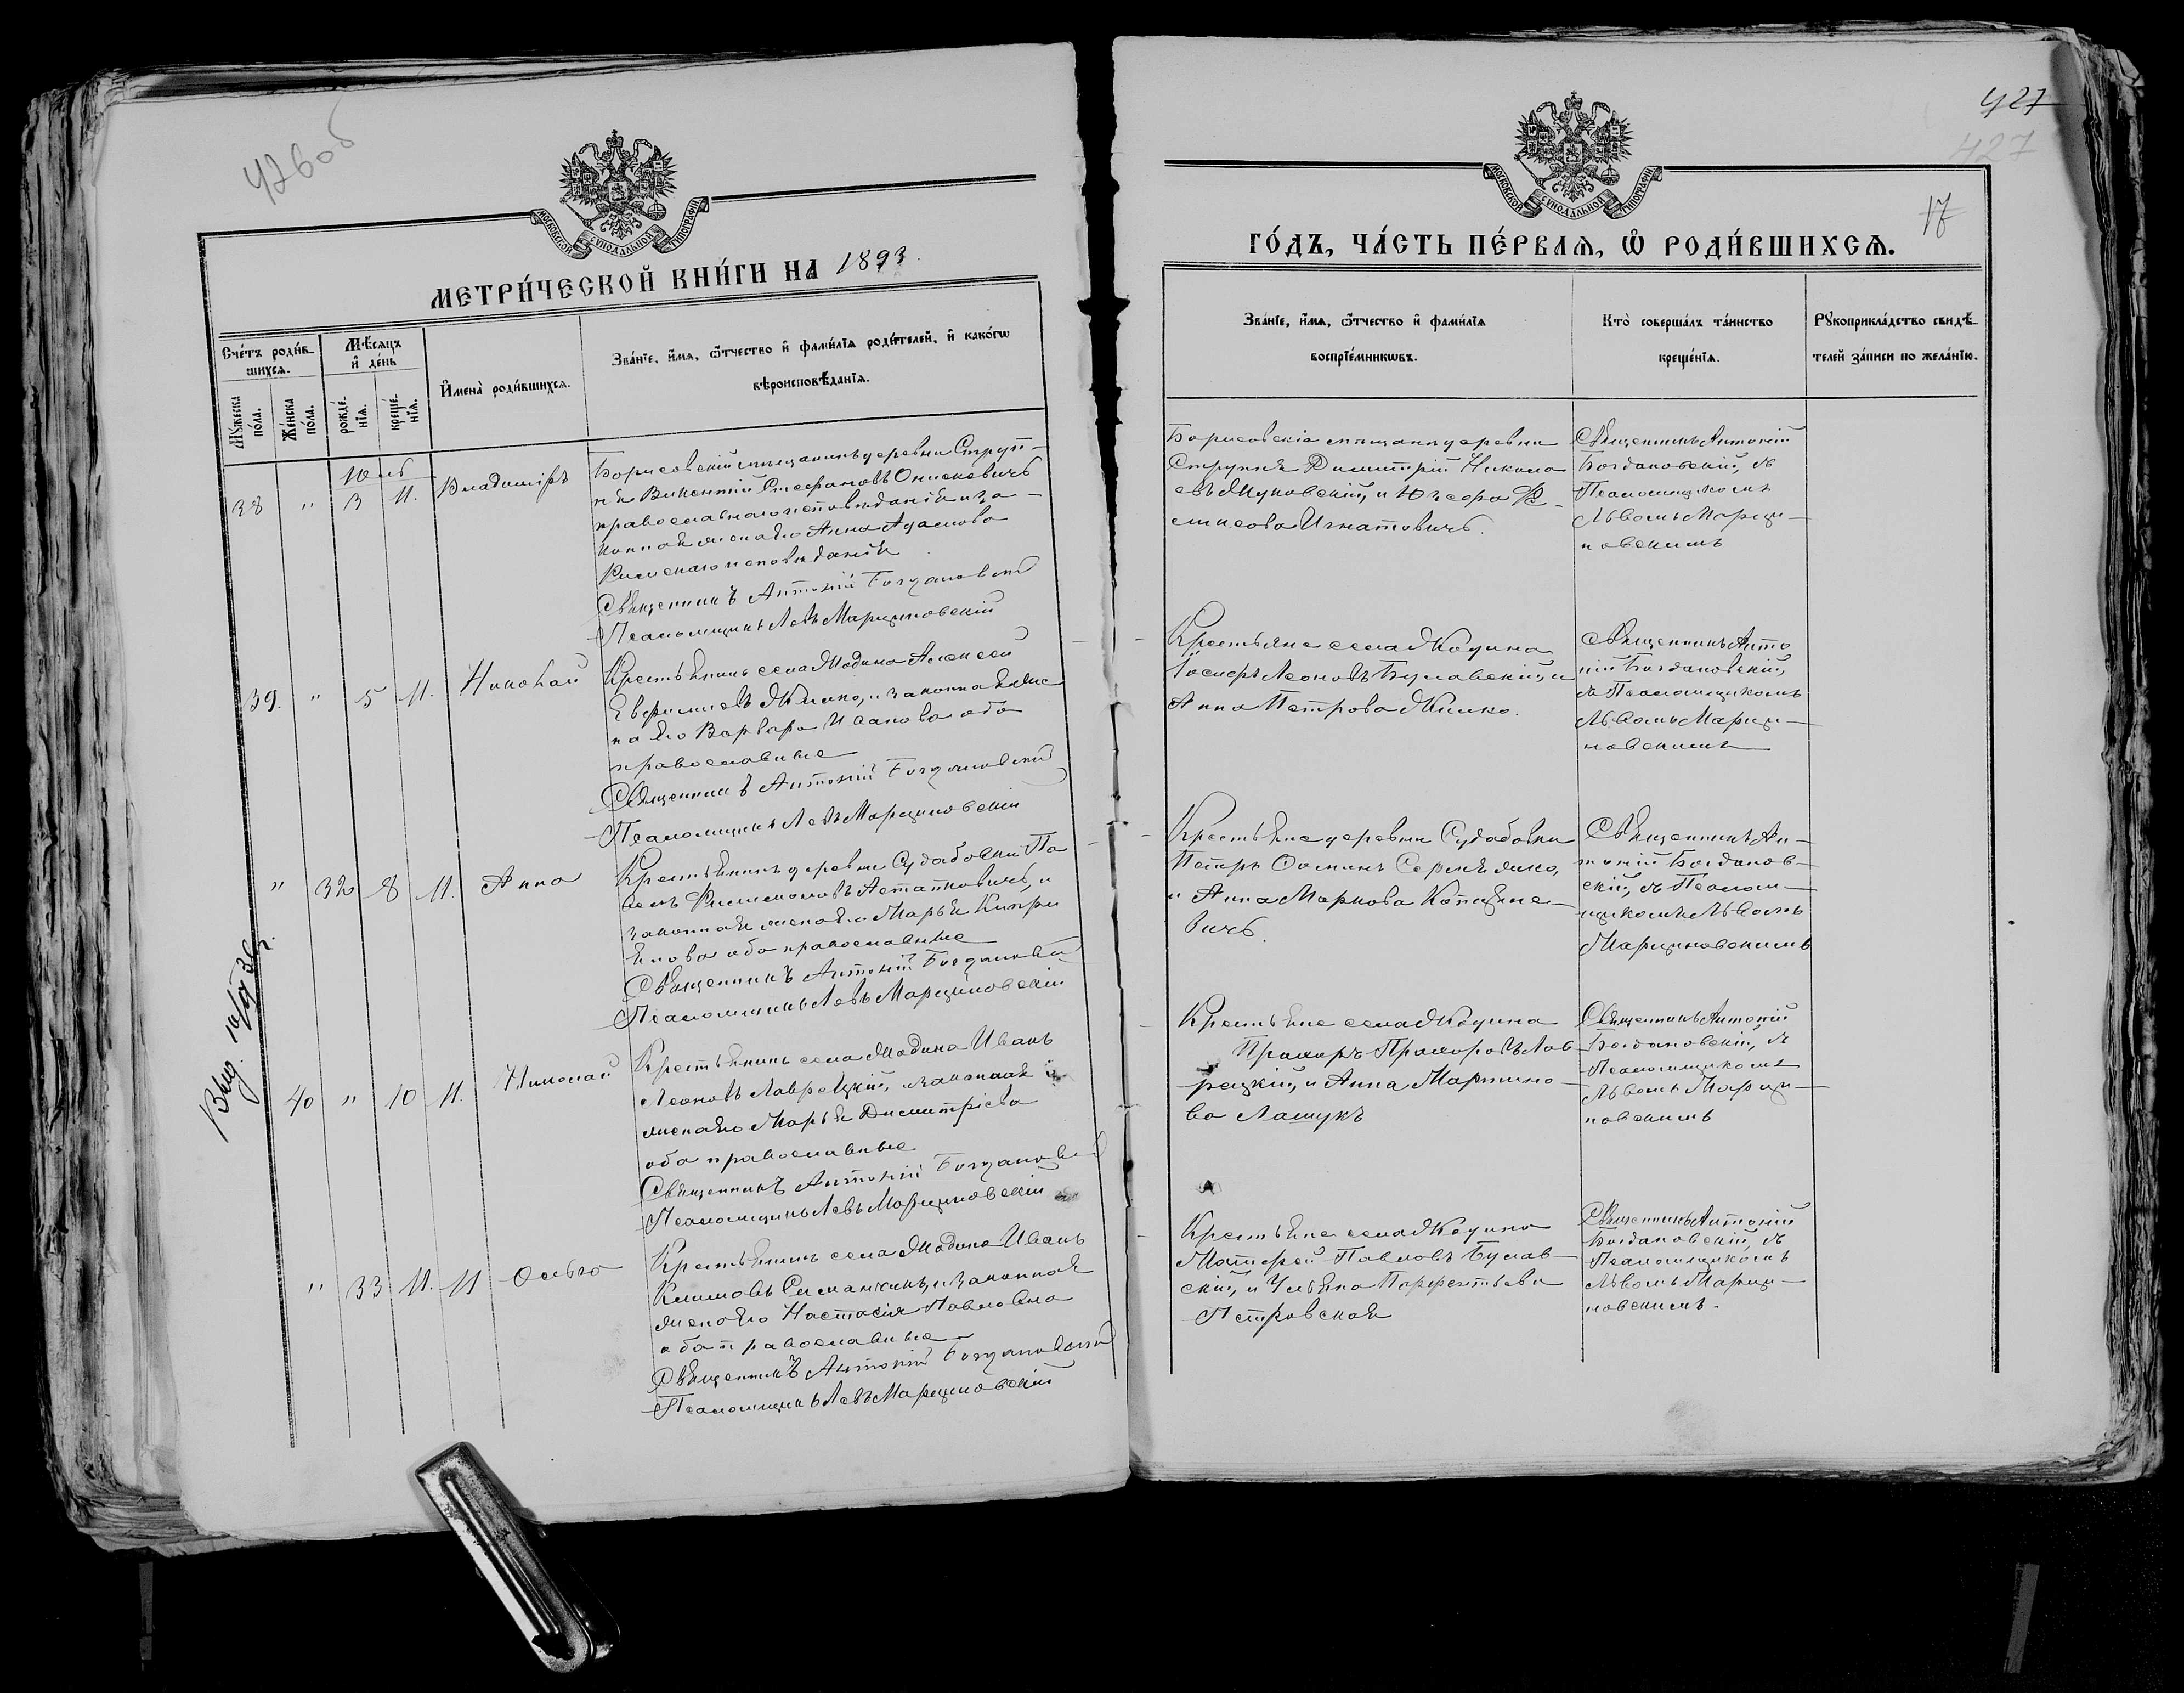 426об
МОСКОВСКОЙ СУНОДАЛЬНОЙ ТИПОГРАФІИ
МЕТРИ́ЧЕСКОЙ КНИ́ГИ НА 1893.
Сче́тъ роди́в-
шихсѧ.
Мѣ́сѧцъ
и҆ де́нь
И҆мена̀ роди́вшихсѧ.
Зва́нїе, и҆́мѧ, ѻ҆́тчество и҆ фами́лїѧ роди́телей, и҆ како́гѡ
вѣроисповѣ́данїѧ.
Мꙋ́жеска
по́ла.
Же́нска
по́ла.
рожде́-
нїѧ.
креще́-
нїѧ.
Юль
38 " 3 11. Владиміръ
Борисовскій мѣщанинъ деревни Струп-
нѣ Викентій Стефановъ Онисковичъ
православнаго исповѣданія и за-
конная жена его Анна Адамова
Римскаго исповѣданія
Священникъ Антоній Богдановскій
Псаломщикъ Левъ Марциновскій
39. " 5 11. Николай
Крестьянинъ села Жодина Алексей
Евфимiевъ Жилко, и законная же
на его Варвара Иванова оба
православные
Священникъ Антоній Богдановскій
Псаломщикъ Левъ Марциновскій
" 32 8 11. Анна
Крестьянинъ деревни Судабовки Па
велъ Филимоновъ Астапковичъ, и
законная жена его Марья Кипри
янова оба православные
Священникъ Антоній Богдановскій
Псаломщикъ Левъ Марциновскій
40 " 10 11. Николай
Крестьянинъ села Жодина Иванъ
Леоновъ Лаврецкій, и законная
жена его Марья Димитріева
оба православные
Священникъ Антоній Богдановскій
Псаломщикъ Левъ Марциновскій
" 33 11. 11 Ольга
Крестьянинъ села Жодина Иванъ
Климовъ, и законная
жена его Настасія Павловна
оба православные
Священникъ Антоній Богдановскій
Псаломщикъ Левъ Марциновскій
427
427
17
МОСКОВСКОЙ СУНОДАЛЬНОЙ ТИПОГРАФІИ
ГО́ДЪ, ЧА́СТЬ ПЕ́РВАѦ, Ѡ҆ РОДИ́ВШИХСѦ.
Зва́нїе, и҆́мѧ, ѻ҆́тчество и҆ фами́лїѧ
воспрїе́мникѡвъ.
Кто̀ соверша́лъ та́инство
креще́нїѧ.
Рꙋкоприкла́дство свидѣ́-
телей за́писи по жела́нїю.
Борисовскіе мѣщане деревни
Струпнѣ Димитрій Никола
евъ Жуковскій, и
Игнатовичъ.
Священникъ Антоній
Богдановскій, съ
Псаломщикомъ
Львомъ Марци-
новскимъ
Крестьяне села Жодина
Іосифъ Леоновъ Булавскій, и
Анна Петрова Жилко.
Священникъ Анто
ній Богдановскій,
съ Псаломщикомъ
Львомъ Марци-
новскимъ
Крестьяне деревни Судабовки
Петръ Ѳоминъ
и Анна Маркова
вичъ.
Священникъ Ан-
тоній Богданов-
скій, съ Псалом-
щикомъ Львомъ
Марциновскимъ
Крестьяне села Жодина
Прохоръ Прохоровъ Лав
рецкій, и Анна Мартино-
ва Лашукъ
Священникъ Антоній
Богдановскій, съ
Псаломщикомъ
Львомъ Марци-
новскимъ
Крестьяне села Жодина
Матфей Павловъ Булав-
скій, и Ульяна Парфентьева
Петровская
Священникъ Антоній
Богдановскій, съ
Псаломщикомъ
Львомъ Марци-
новскимъ.